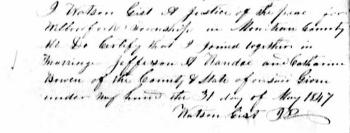 I Watson Gist A Justice of the peace for
Township in County
Mo Do Certify that I Joined together in
Marriage Jefferson A and Catharine
Bowen of the County & State of Given
under my hand the 31 day of May 1847
Watson Gist J P